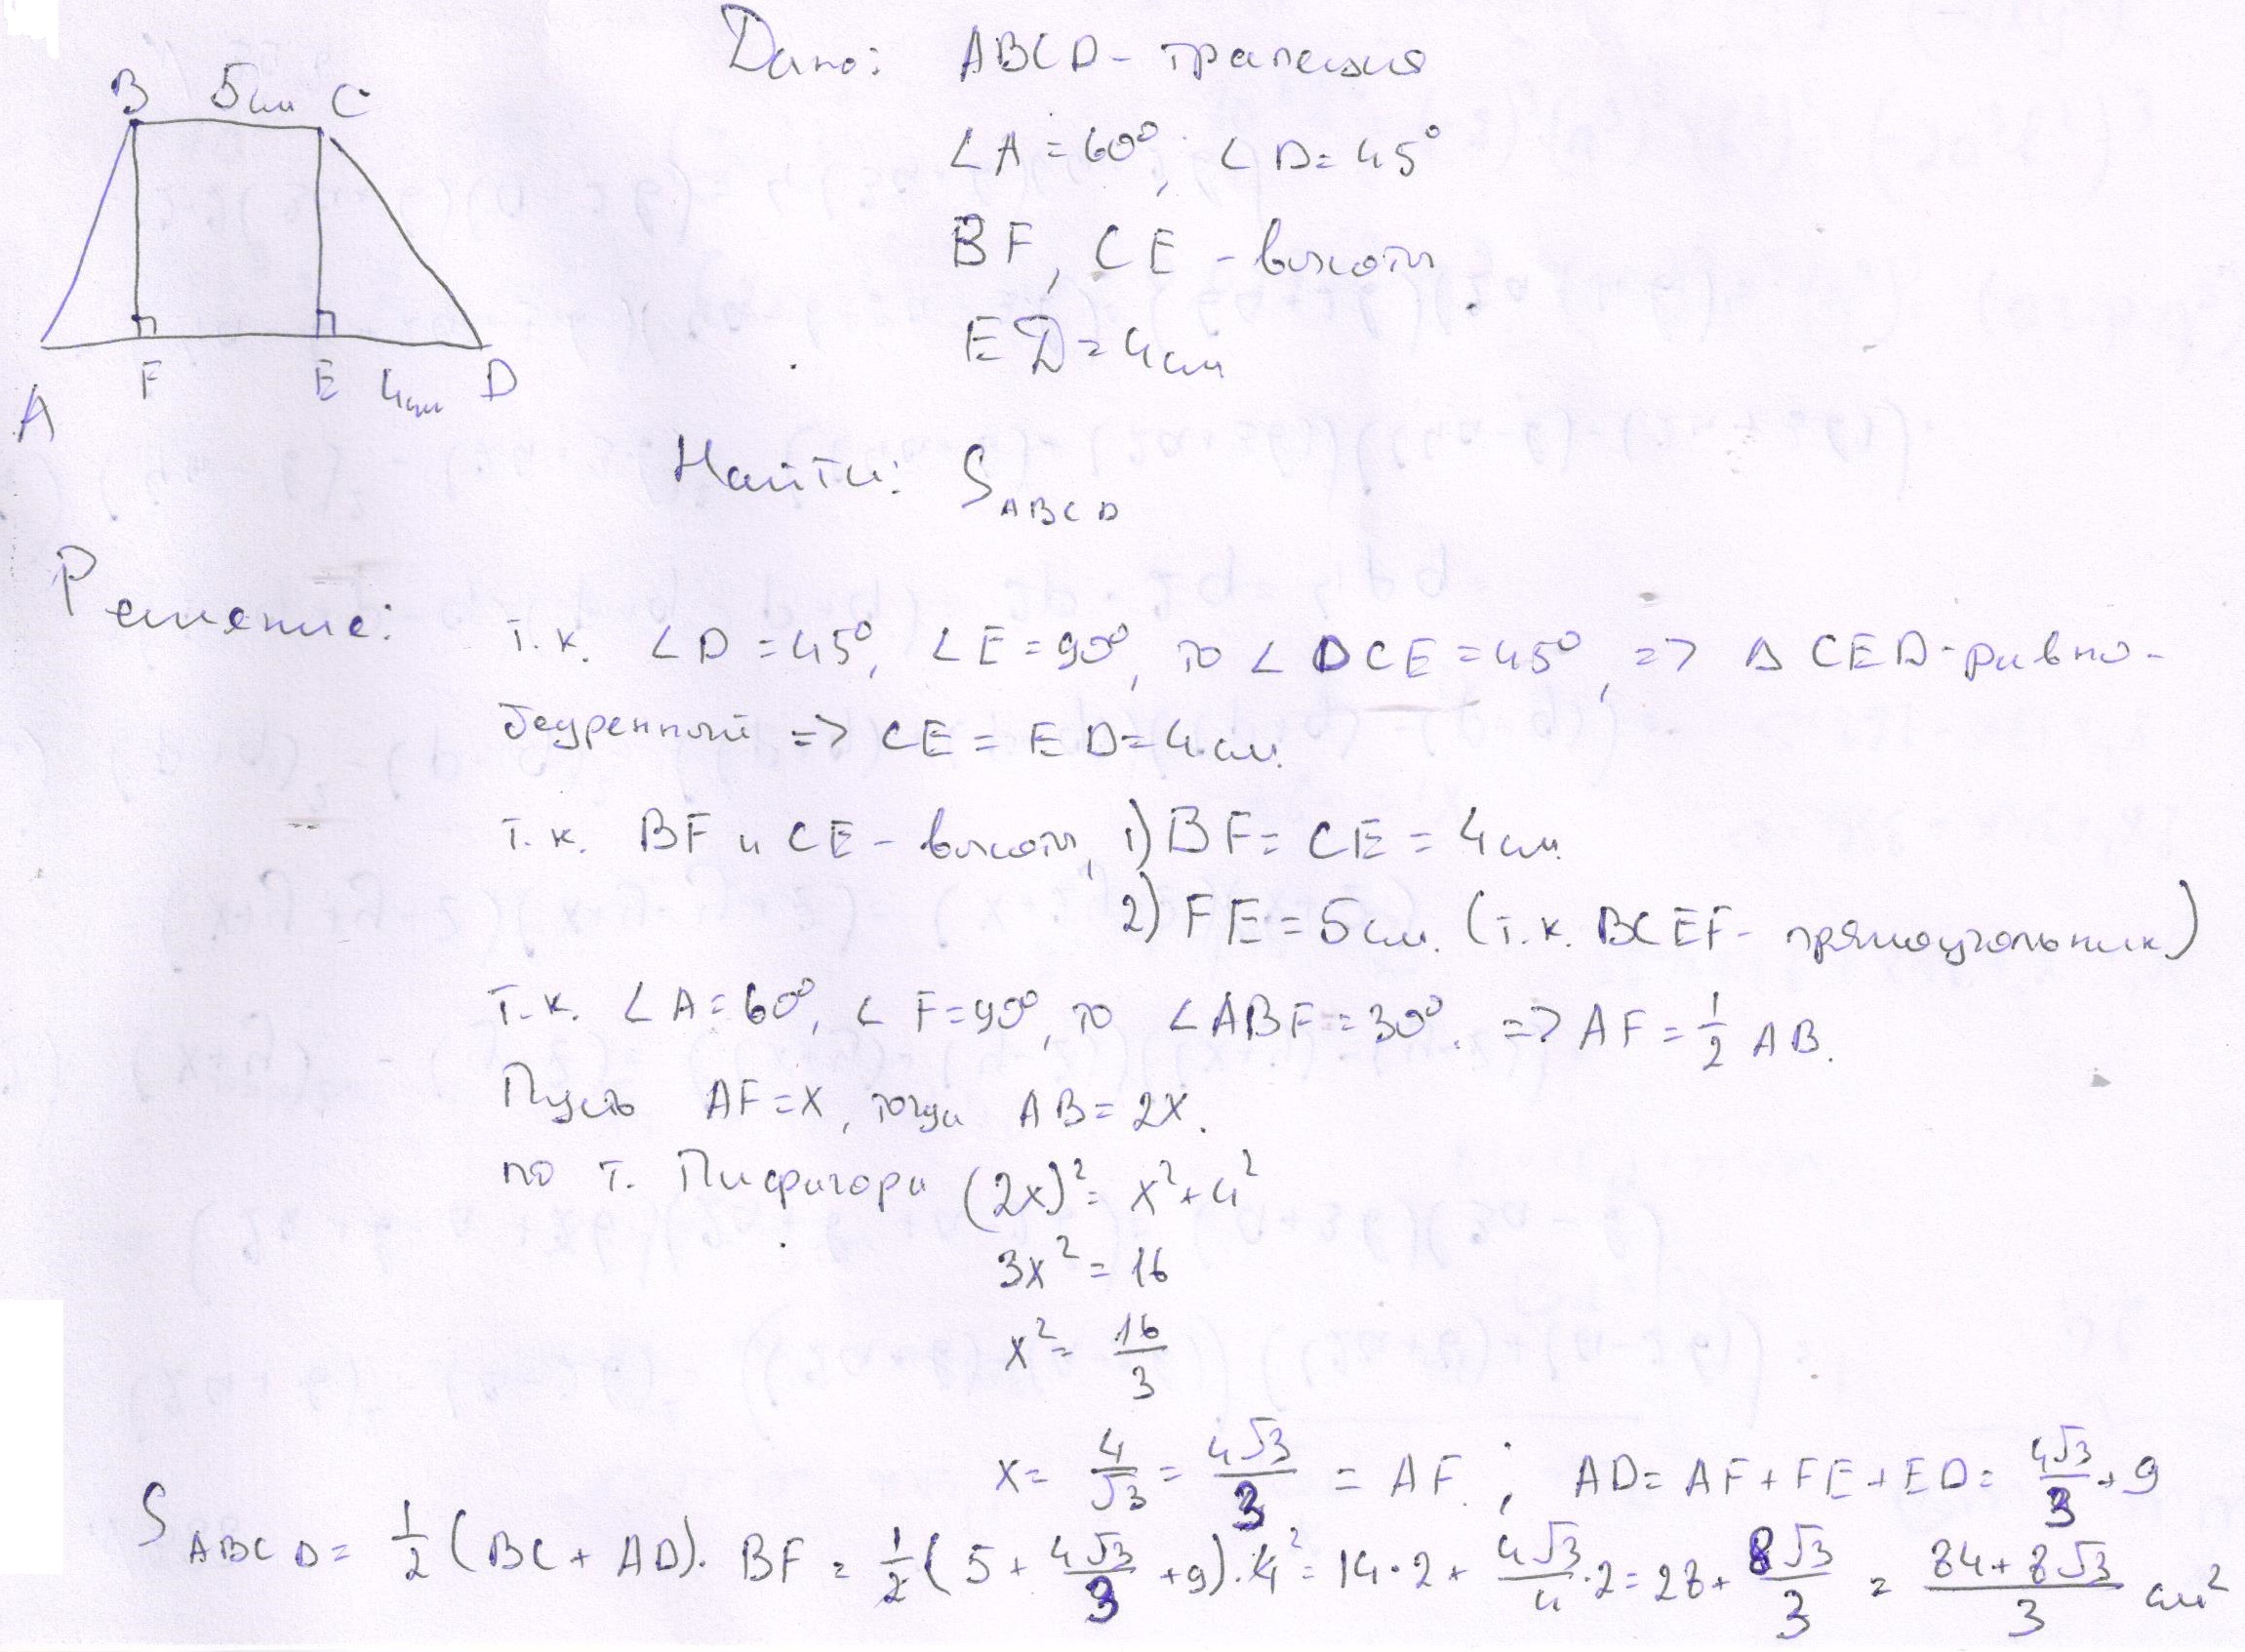 B 5см C
A F E 4см D
Дано: ABCD - трапеция
∠A = 60°, ∠D = 45°
BF, CE - высоты
ED = 4см
Найти: S ABCD
Решение:
т.к. ∠D = 45°, ∠E = 90°, то ∠DCE = 45°, => Δ CED - равно-
бедренный => CE = ED = 4см.
т.к. BF и CE - высоты, 1) BF = CE = 4см.
2) FE = 5см. (т.к. BCEF - прямоугольник)
т.к. ∠A = 60°, ∠F = 90°, то ∠ABF = 30°. => AF = 1/2 AB.
Пусть AF = x, тогда AB = 2x.
по т. Пифагора (2x)² = x² + 4²
3x² = 16
x² = 16/3
x = 4/√3 = 4√3/3 = AF. ; AD = AF + FE + ED = 4√3/3 + 9
S ABCD = 1/2 (BC + AD) · BF = 1/2 (5 + 4√3/3 + 9) · 4² = 14·2 + 4√3/4 · 2 = 28 + 8√3/3 = 84 + 8√3/3 см²